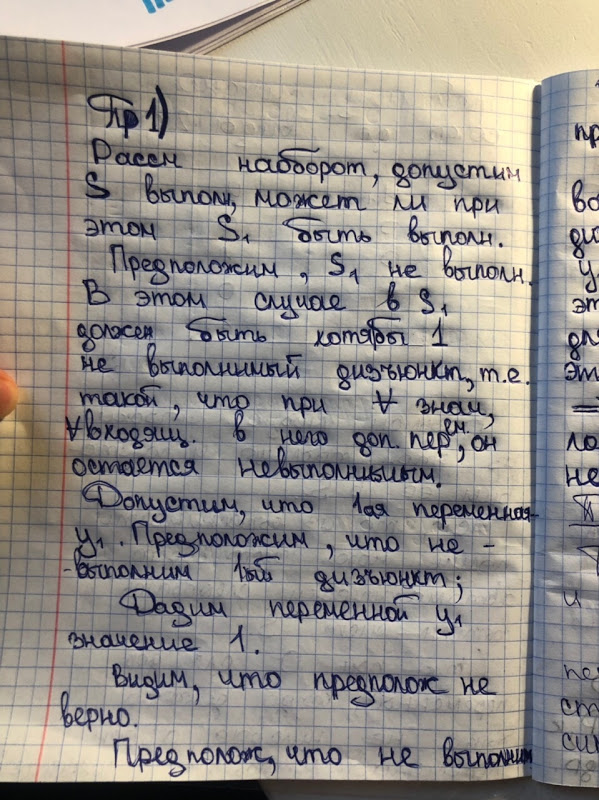 Пр 1)
Рассм наоборот, допустим
S выполн, может ли при
этом S₁ быть выполн.
Предположим, S₁ не выполн.
В этом случае в S₁
должен быть хотябы 1
не выполнимый дизъюнкт, т.е.
такой, что при ∀ знач,
∀входящ. в него доп. перем., он
остается невыполнимым.
Допустим, что 1ая переменная-
y₁. Предположим, что не-
-выполним 1ый дизъюнкт;
Дадим переменной y₁
значение 1.
Видим, что предполож не
верно.
Предполож, что не выполним